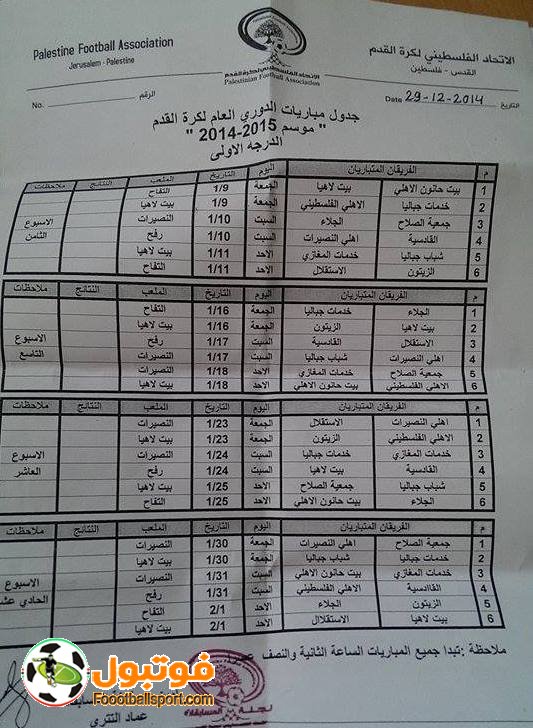 Palestine Football Association
Jerusalem - Palestine
الاتحاد الفلسطيني لكرة القدم
القدس - فلسطين
الاتحاد الفلسطيني لكرة القدم
Palestinian Football Association
No. الرقم
Date 29-12-2014 التاريخ
جدول مباريات الدوري العام لكرة القدم
" موسم 2015-2014 "
الدرجه الاولى
م الفريقان المتباريان اليوم التاريخ الملعب النتائج ملاحظات
1 بيت حانون الاهلي بيت لاهيا الجمعة 1/9 التفاح
2 خدمات جباليا الاهلي الفلسطيني الجمعة 1/9 بيت لاهيا
3 جمعية الصلاح الجلاء السبت 1/10 النصيرات
4 القادسية اهلي النصيرات السبت 1/10 رفح
5 شباب جباليا خدمات المغازي الاحد 1/11 بيت لاهيا
6 الزيتون الاستقلال الاحد 1/11 التفاح
الاسبوع الثامن
م الفريقان المتباريان اليوم التاريخ الملعب النتائج ملاحظات
1 الجلاء خدمات جباليا الجمعة 1/16 التفاح
2 بيت لاهيا الزيتون الجمعة 1/16 بيت لاهيا
3 الاستقلال القادسية السبت 1/17 رفح
4 اهلي النصيرات شباب جباليا السبت 1/17 النصيرات
5 جمعية الصلاح خدمات المغازي الاحد 1/18 النصيرات
6 الاهلي الفلسطيني بيت حانون الاهلي الاحد 1/18 بيت لاهيا
الاسبوع التاسع
م الفريقان المتباريان اليوم التاريخ الملعب النتائج ملاحظات
1 اهلي النصيرات الاستقلال الجمعة 1/23 النصيرات
2 الاهلي الفلسطيني الزيتون الجمعة 1/23 بيت لاهيا
3 خدمات المغازي خدمات جباليا السبت 1/24 النصيرات
4 القادسية بيت لاهيا السبت 1/24 رفح
5 شباب جباليا جمعية الصلاح الاحد 1/25 بيت لاهيا
6 الجلاء بيت حانون الاهلي الاحد 1/25 التفاح
الاسبوع العاشر
م الفريقان المتباريان اليوم التاريخ الملعب النتائج ملاحظات
1 جمعية الصلاح اهلي النصيرات الجمعة 1/30 النصيرات
2 خدمات جباليا شباب جباليا الجمعة 1/30 بيت لاهيا
3 خدمات المغازي بيت حانون الاهلي السبت 1/31 النصيرات
4 القاادسية الاهلي الفلسطيني السبت 1/31 رفح
5 الزيتون الجلاء الاحد 2/1 التفاح
6 بيت لاهيا الاستقلال الاحد 2/1 بيت لاهيا
الاسبوع
الحادي عشر
ملاحظة :تبدا جميع المباريات الساعة الثانية والنصف
لجنة المسابقات
عماد التتري
فوتبول
Foootballsport.com